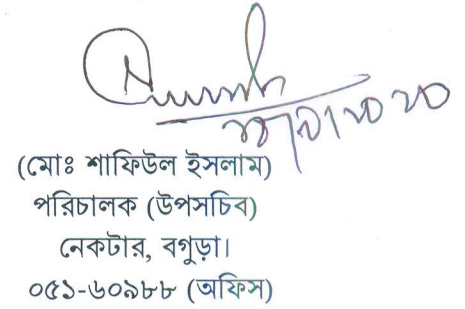 (মোঃ শাফিউল ইসলাম)
পরিচালক (উপসচিব)
নেকটার, বগুড়া।
০৫১-৬০৯৮৮ (অফিস)